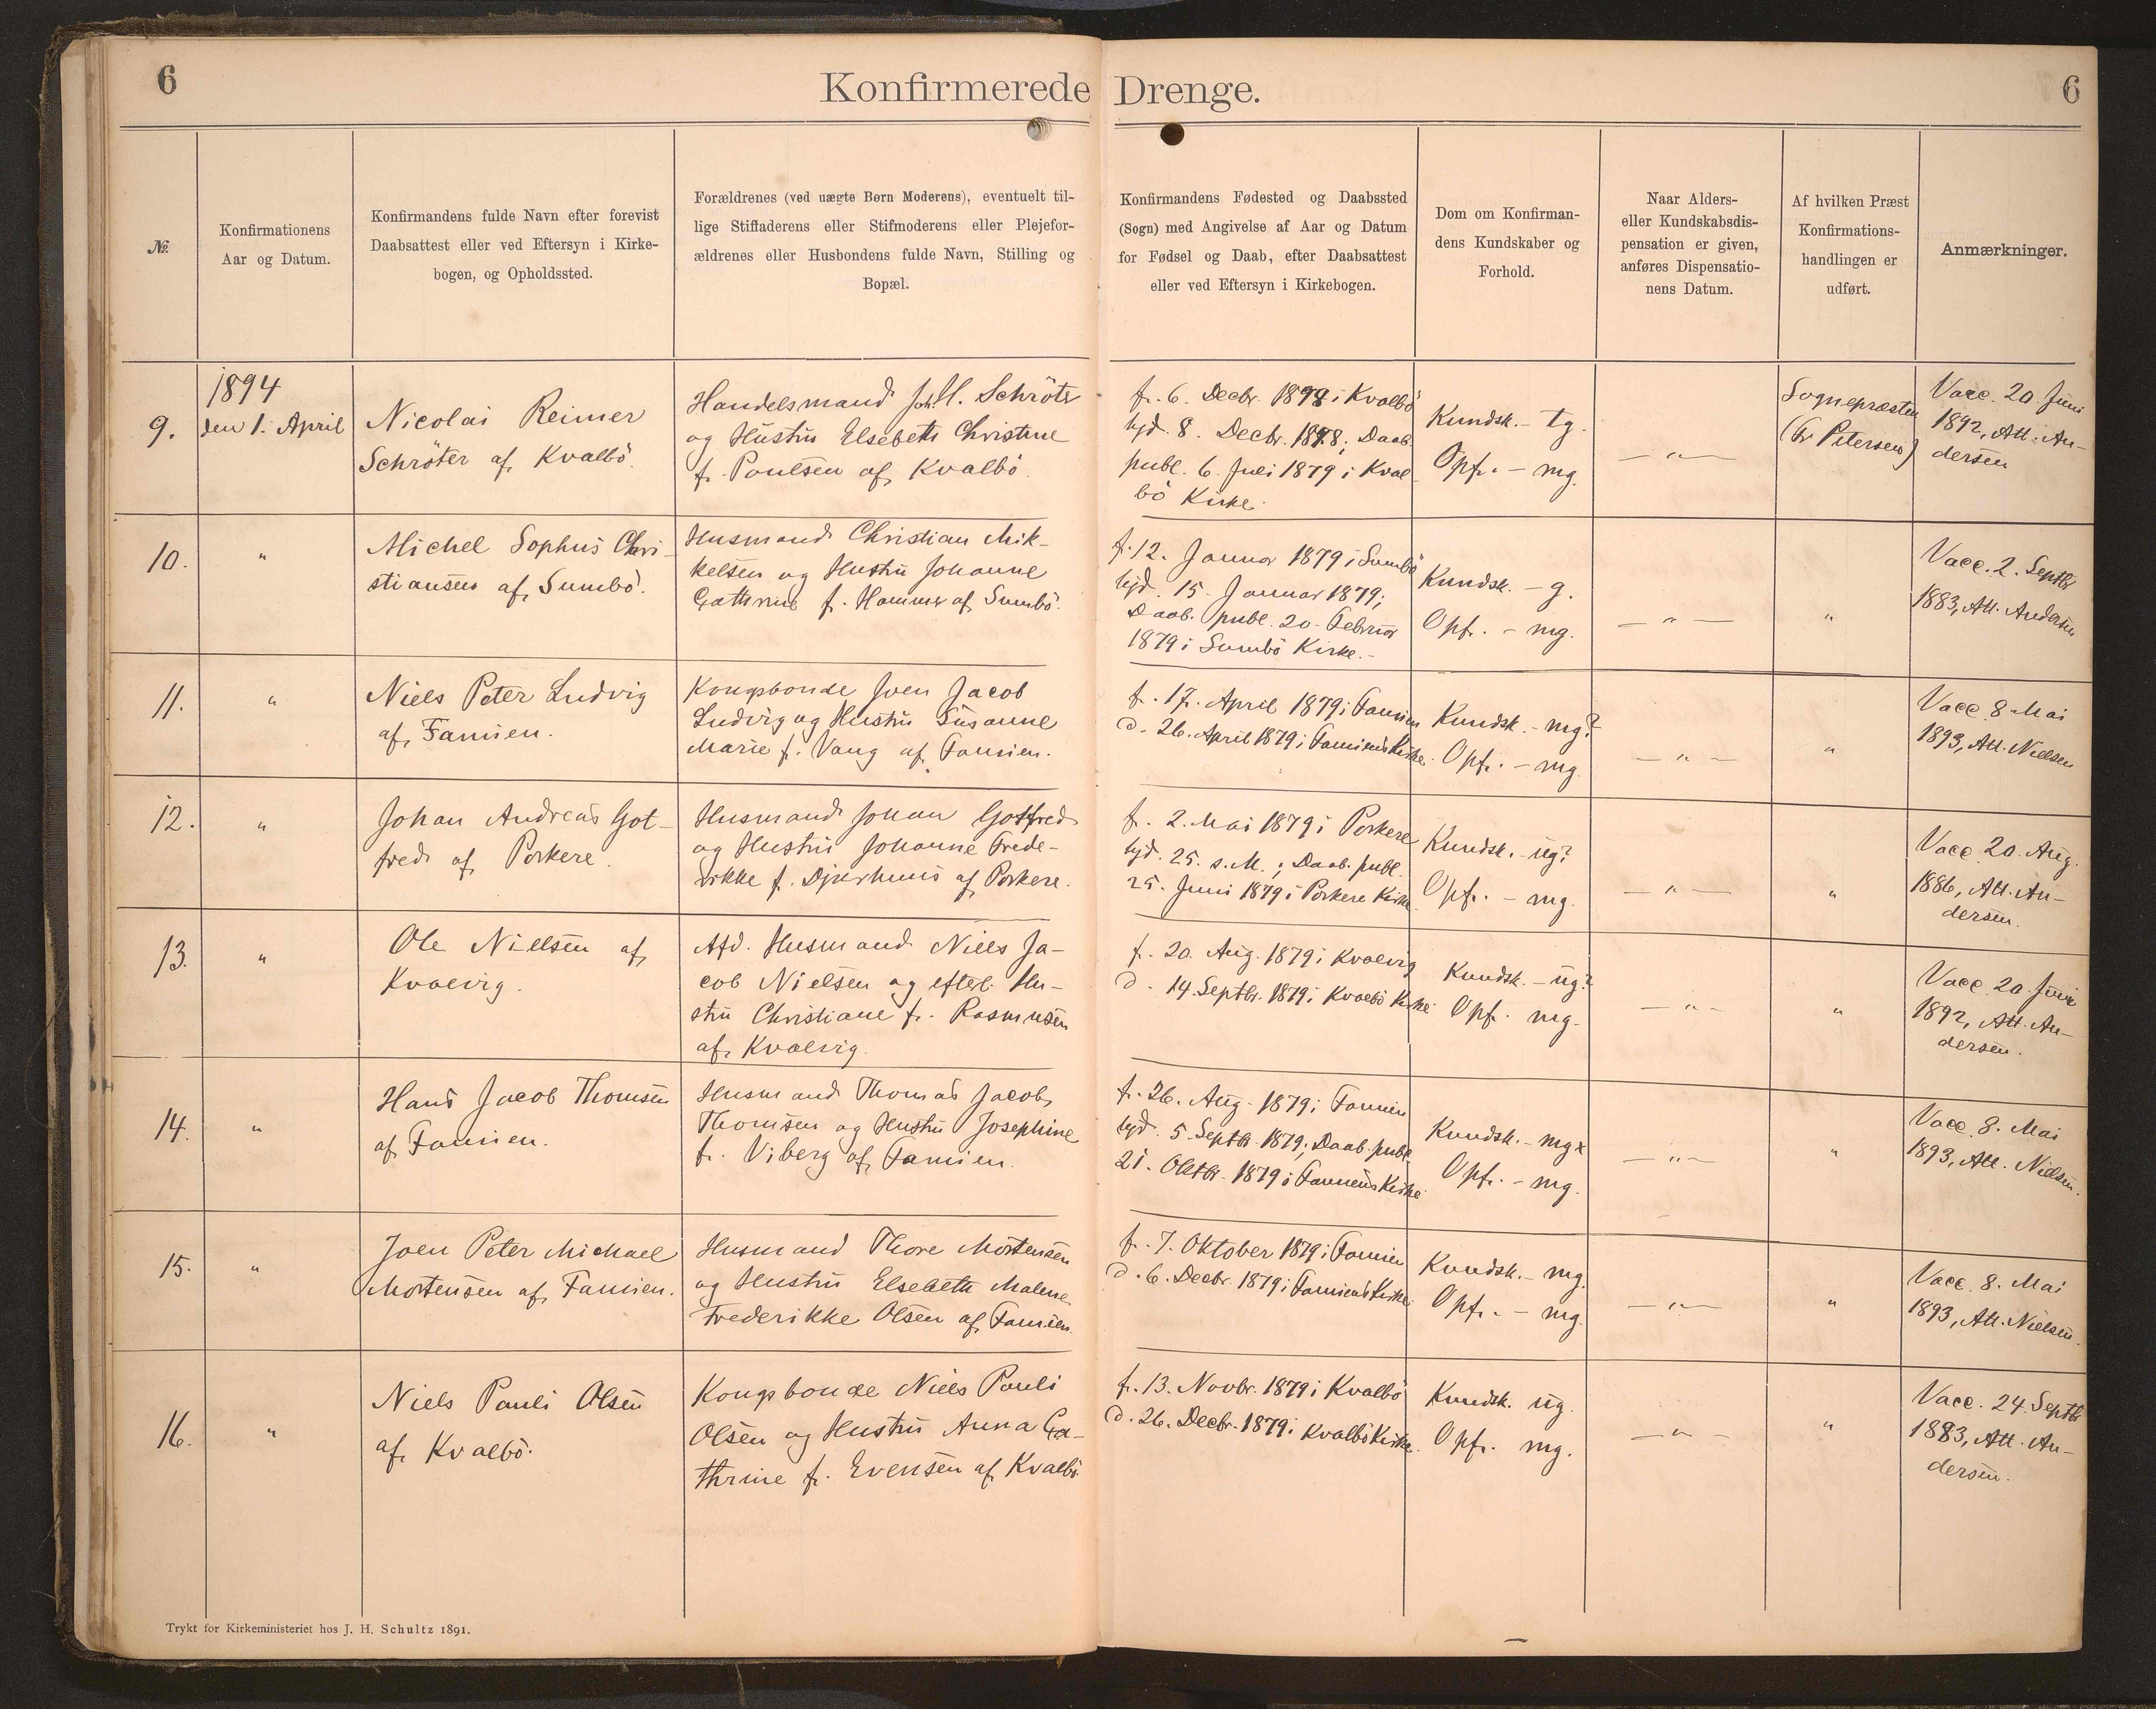 6
Konfirmerede Drenge.
6
№
Konfirmationens
Aar og Datum.
Konfirmandens fulde Navn efter forevist
Daabsattest eller ved Eftersyn i Kirke-
bogen, og Opholdssted.
Forældrenes (ved uægte Børn Moderens), eventuelt til-
lige Stiffaderens eller Stifmoderens eller Plejefor-
ældrenes eller Husbondens fulde Navn, Stilling og
Bopæl.
Konfirmandens Fødested og Daabssted
(Sogn) med Angivelse af Aar og Datum
for Fødsel og Daab, efter Daabsattest
eller ved Eftersyn i Kirkebogen.
Dom om Konfirman-
dens Kundskaber og
Forhold.
Naar Alders-
eller Kundskabsdis-
pensation er given,
anføres Dispensatio-
nens Datum.
Af hvilken Præst
Konfirmations-
handlingen er
udført.
Anmærkninger.
9.
1894
den 1. April
Nicolai Reimer
Schröter af Kvalbö.
Handelsmand Joh. H. Schröter
og Hustru Elsebeth Christine
f. Poulsen af Kvalbö.
f. 6. Decbr. 1878 i Kvalbö
hjd. 8. Decbr. 1878; Daab.
publ. 6. Juli 1879 i Kval-
bö Kirke.
Kundsk. - tg.
Opf. - mg.
— " —
Sognepræsten
(Fr Petersen)
Vacc. 20 Juni
1892, Att. An-
dersen
10.
"
Michel Sophus Chri-
stiansen af Sumbö.
Husmand Christian Mik-
kelsen og Hustru Johanne
Cathrine f. Hammer af Sumbö.
f. 12. Januar 1879 i Sumbö
hjd. 15. Januar 1879;
Daab. publ. 20. Februar
1879 i Sumbö Kirke.-
Kundsk. - g.
Opf. - mg.
— " —
"
Vacc. 2. Septbr
1883, Att. Andersen
11.
"
Niels Peter Ludvig
af Famien.
Kongsbonde Joen Jacob
Ludvig og Hustru Susanne
Marie f. Vang af Famien.
f. 17. April 1879 i Famien
d. 26. April 1879 i Famiens Kirke.
Kundsk. - mg?
Opf. - mg.
— " —
"
Vacc. 8 Mai
1893, Att. Nielsen
12.
"
Johan Andreas Got-
fred af Porkere.
Husmand Johan Gotfred
og Hustru Johanne Frede-
rikke f. Djurhuus af Porkere.
f. 2. Mai 1879 i Porkere
hjd. 25. s. M.; Daab. publ.
25. Juni 1879 i Porkere Kirke.
Kundsk. - ug?
Opf. - mg.
— " —
"
Vacc. 20. Aug.
1886, Att. An-
dersen.
13.
"
Ole Nielsen af
Kvalvig.
Afd. Husmand Niels Ja-
cob Nielsen og efterl. Hu-
stru Christiane f. Rasmusen
af Kvalvig.
f. 20. Aug. 1879 i Kvalvig
d. 14. Septbr. 1879 i Kvalbö Kirke
Kundsk. - ug?
Opf. mg.
— " —
"
Vacc. 20. Juni
1892, Att. An-
dersen.
14.
"
Hans Jacob Thomsen
af Famien.
Husmand Thomas Jacob
Thomsen og Hustru Josephine
f. Viberg af Famien.
f. 26. Aug. 1879 i Famien
hjd. 5. Septbr. 1879; Daab. publ.
21. Oktbr. 1879 i Famiens Kirke
Kundsk. - mg x
Opf. - mg.
— " —
"
Vacc. 8. Mai
1893, Att. Nielsen.
15.
"
Joen Peter Michael
Mortensen af Famien.
Husmand Thore Mortensen
og Hustru Elsebeth Malene
Frederikke Olsen af Famien.
f. 7. Oktober 1879 i Famien
d. 6. Decbr. 1879 i Famiens Kirke.
Kundsk. - mg.
Opf. - mg.
— " —
"
Vacc. 8. Mai
1893, Att. Nielsen.
16.
"
Niels Pauli Olsen
af Kvalbö.
Kongsbonde Niels Pauli
Olsen og Hustru Anna Ca-
thrine f. Evensen af Kvalbö.
f. 13. Novbr. 1879 i Kvalbö
d. 26. Decbr. 1879 i Kvalbö Kirke.
Kundsk. ug.
Opf. mg.
— " —
"
Vacc. 24. Septbr
1883, Att. An-
dersen.
Trykt for Kirkeministeriet hos J. H. Schultz 1891.